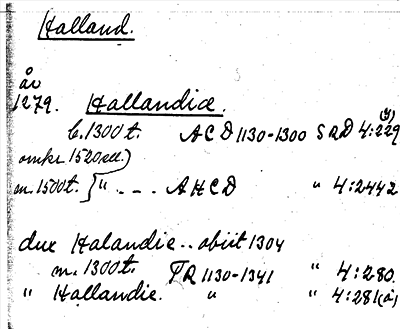 Halland.
år
1279. Hallandiæ.
(y)
b. 1300t. ACD 1130-1300 SRD 4:229
omkr 1520
m. 1500t. } " - - - AHCD " 4:244 2
dux Halandie .. obiit 1304
m. 1300t. FR 1130-1341 " 4:280.
" Hallandie. " " 4:281(a)